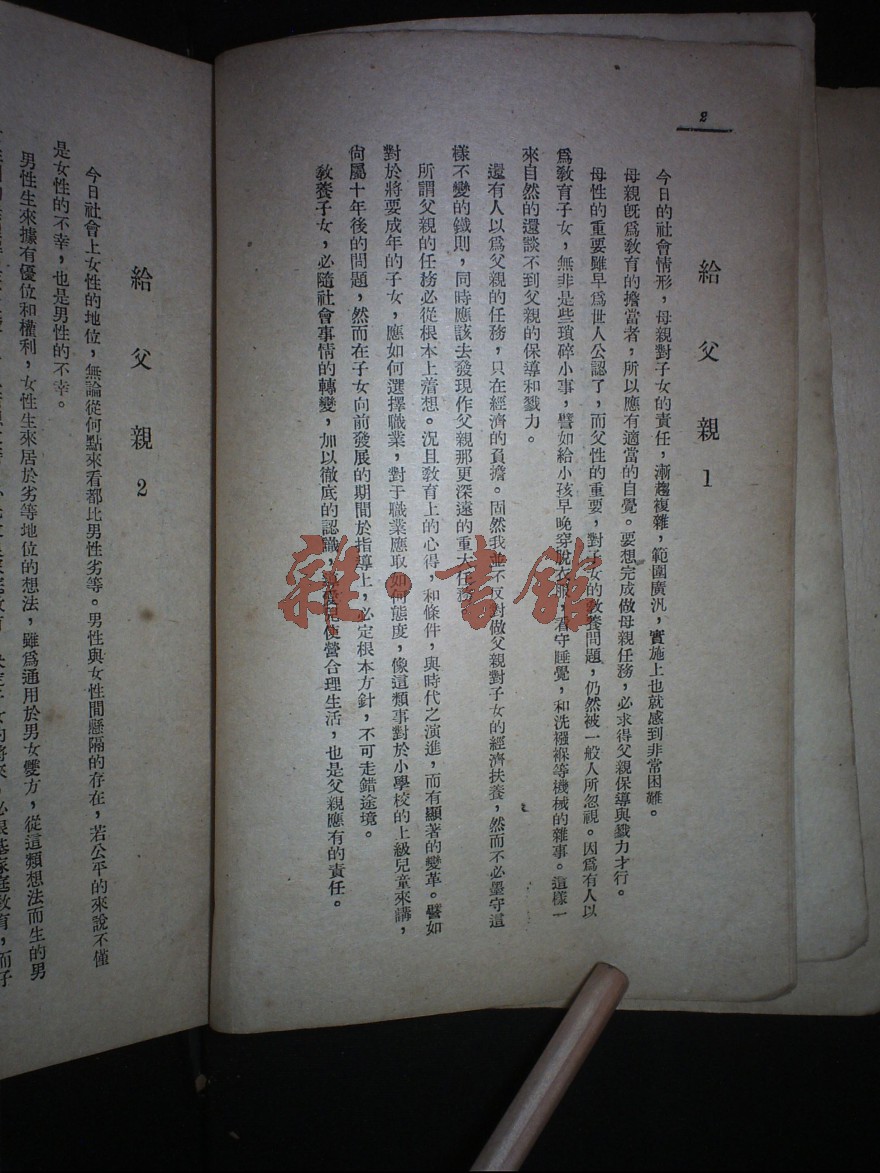 2
給父親1
今日的社會情形，母親對子女的責任，漸趨複雜，範圍廣汎，實施上也就感到非常困難。
母親旣爲敎育的擔當者，所以應有適當的自覺。要想完成做母親任務，必求得父親保導與戮力才行。
母性的重要雖早爲世人公認了，而父性的重要，對子女的敎養問題，仍然被一般人所忽視。因爲有人以
爲敎育子女，無非是些瑣碎小事，譬如給小孩早晚穿脫衣服，看守睡覺，和洗襁褓等機械的雜事。這樣一
來自然的還談不到父親的保導和戮力。
還有人以爲父親的任務，只在經濟的負擔。固然我並不反對做父親對子女的經濟扶養，然而不必墨守這
樣不變的鐵則，同時應該去發現作父親那更深遠的重大任務。
所謂父親的任務必從根本上着想。況且敎育上的心得，和條件，與時代之演進，而有顯著的變革。譬如
對於將要成年的子女，應如何選擇職業，對于職業應取如何態度，像這類事對於小學校的上級兒童來講，
尙屬十年後的問題，然而在子女向前發展的期間於指導上，必定根本方針，不可走錯途境。
敎養子女，必隨社會事情的轉變，加以徹底的認識，兒使營合理生活，也是父親應有的責任。
雜·書館
給父親2
今日社會上女性的地位，無論從何點來看都比男性劣等。男性與女性間懸隔的存在，若公平的來說不僅
是女性的不幸，也是男性的不幸。
男性生來據有優位和權利，女性生來居於劣等地位的想法，雖爲通用於男女雙方，從這類想法而生的男